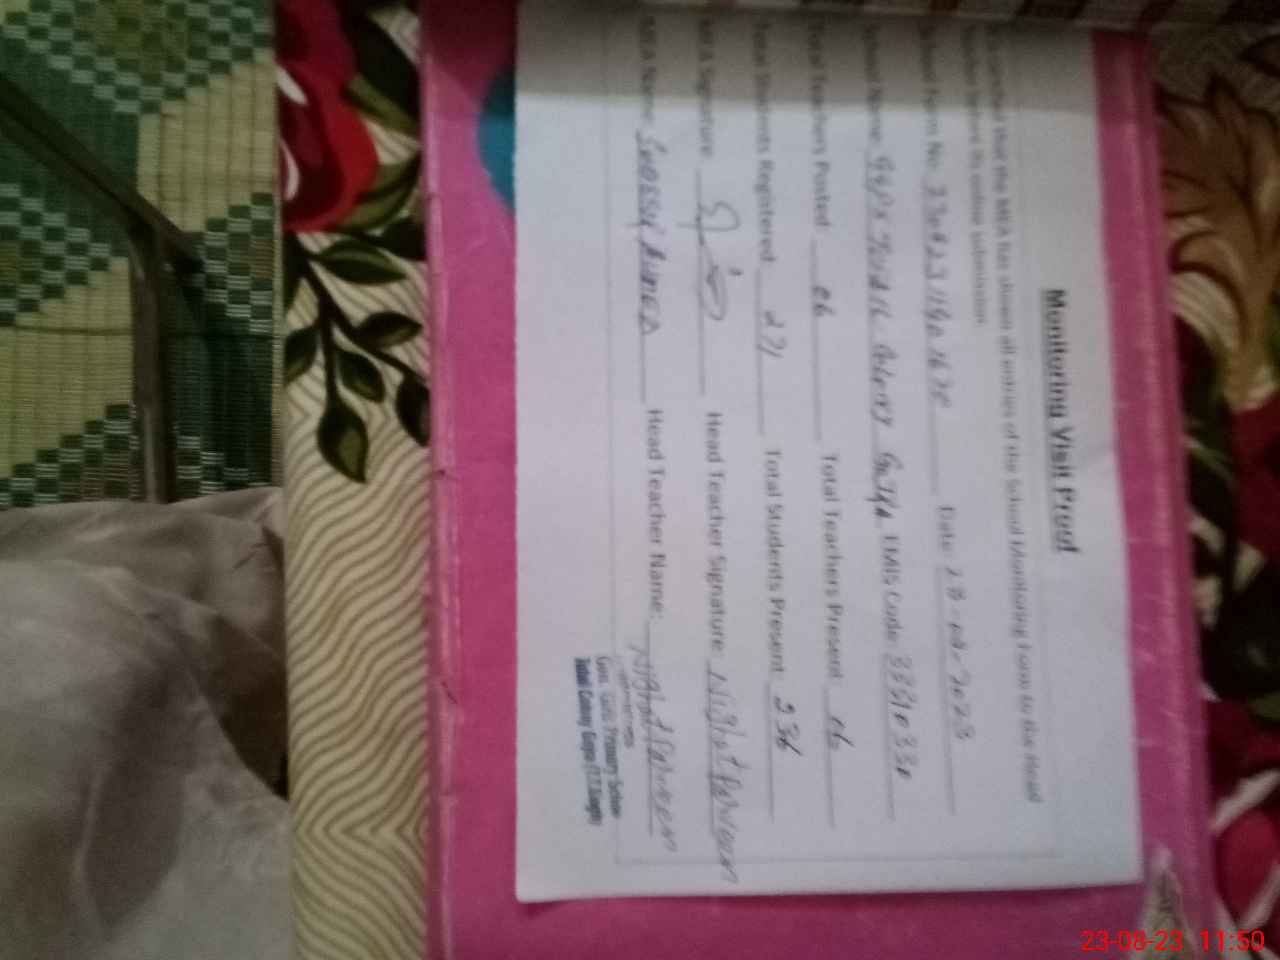 Monitoring Visit Proof
that the MEA has shown all entries of the School Monitoring Form to the Head
before its online submission
Form No. Date: 23-08-2023
School Name: GGPS Colony Gojra EMIS Code 33310330
Total Teachers Posted 06 Total Teachers Present 06
Total Students Registered 271 Total Students Present 236
MEA Signature Head Teacher Signature Nighat Parveen
MEA Name: AHMED Head Teacher Name: Nighat Parveen
Govt. Girls Primary School
Colony Gojra (T.T.Singh)
23-08-23 11:50